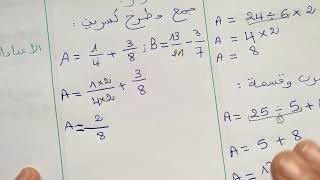 جمع وطرح كسرين :
A = 1/4 + 3/8 ; B = 13/21 - 3/7
A = 1×2/4×2 + 3/8
A = 2/8
A = 24 ÷ 6 × 2
A = 4 × 2
A = 8
وقسمة :
A = 25 ÷ 5 +
A = 5 + 8
A =